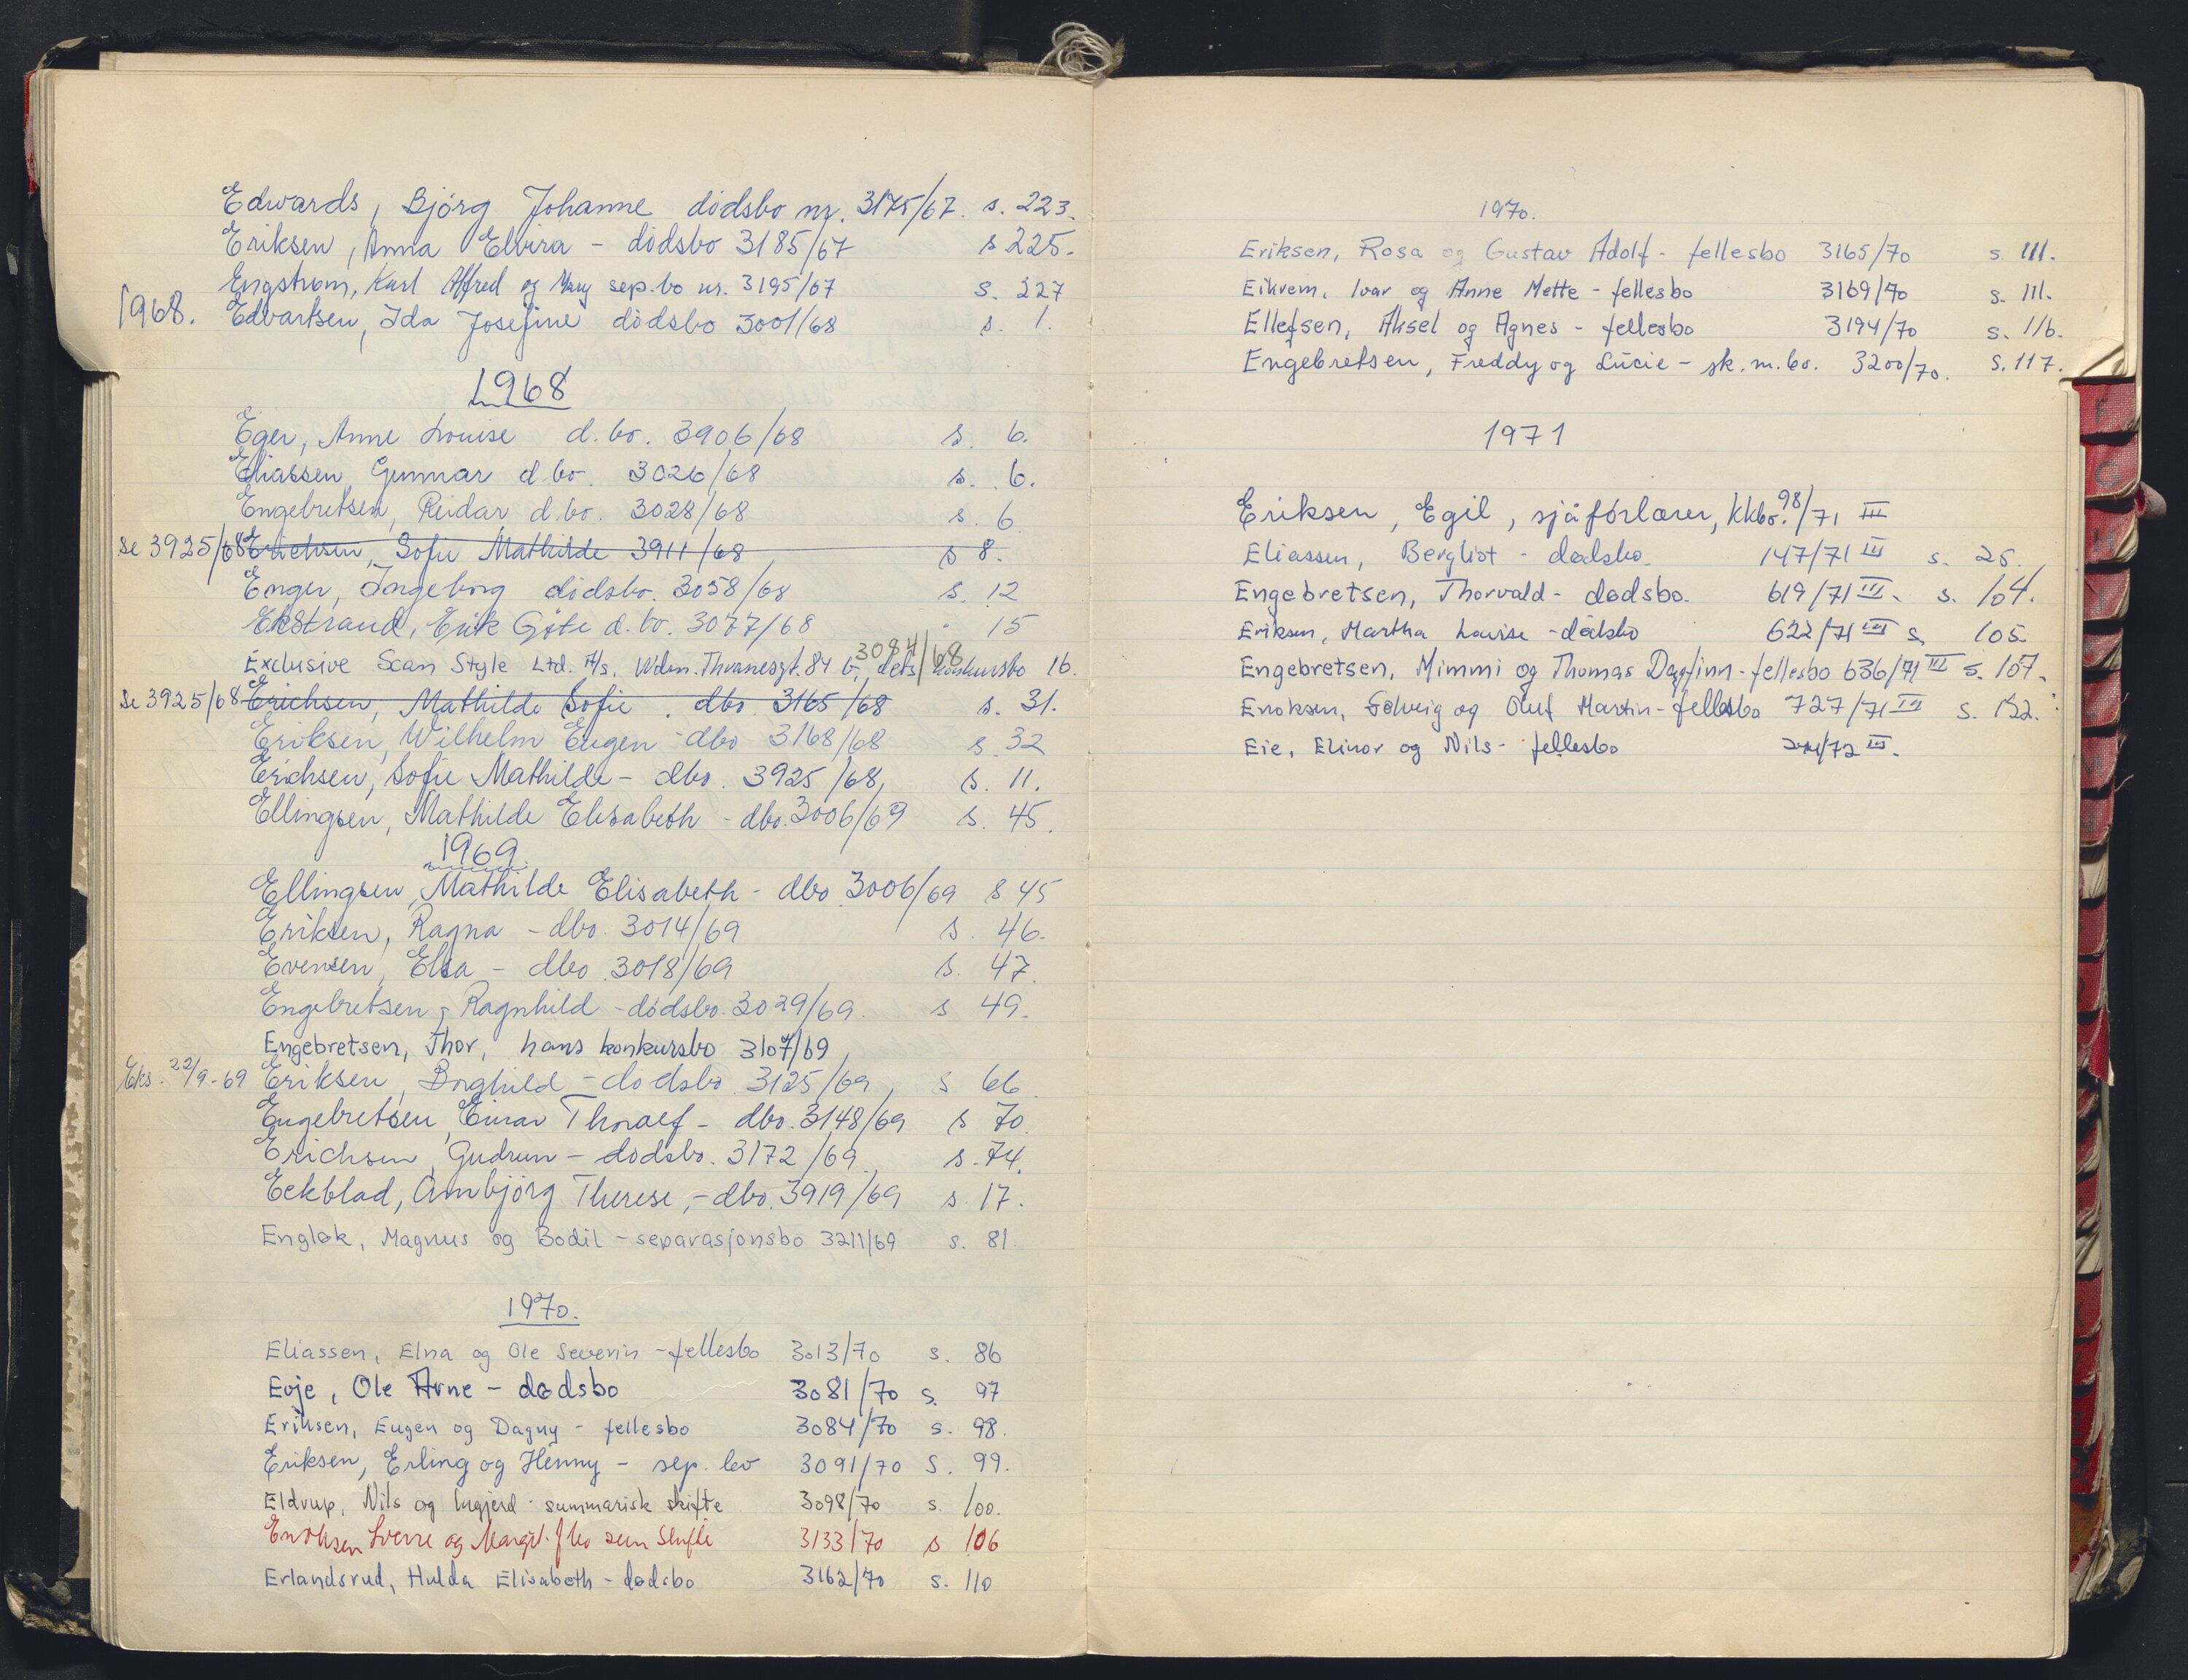 Edwards, Bjørg Johanne dødsbo nr. 3175/67. s. 223.
Eriksen, Anna Elvira - dødsbo 3185/67 s 225.
Engstrøm, Karl Alfred og Mary sep.bo nr. 3195/67 s. 227
1968. Edvartsen, Ida Josefine dødsbo 3001/68 s. 1.
1968
Eger, Anne Louise d.bo. 3906/68 s. 6.
Eliassen Gunnar d.bo. 3026/68 s. 6.
Engebretsen, Reidar d.bo. 3028/68 s. 6
se 3925/68 Erichsen, Sofie Mathilde 3911/68 s 8.
Enger, Ingeborg dødsbo. 3058/68 s. 12
Ekstrand, Erik Gøte d.bo. 3077/68 " 15
3084/68
Exclusive Scan Style Ltd. A/s, Wdm. Thranesgt. 84 b, dets konkursbo 16.
se 3925/68 Erichsen, Mathilde Sofie. dbo 3165/68 s. 31.
Eriksen, Wilhelm Eugen - dbo 3168/68 s 32
Erichsen, Sofie Mathilde - dbo. 3925/68, s. 11.
Ellingsen, Mathilde Elisabeth - dbo. 3006/69 s. 45.
1969.
Ellingsen, Mathilde Elisabeth - dbo 3006/69 s 45
Eriksen, Ragna - dbo. 3014/69 s. 46.
Evensen, Elsa - dbo. 3018/69 s. 47
Engebretsen, Ragnhild - dødsbo. 3029/69. s 49.
Engebretsen, Thor, hans konkursbo 3107/69,
Eks. 22/9-69 Eriksen, Borghild - dødsbo 3125/69, s 66
Engebretsen, Einar Thoralf - dbo. 3148/69 s 70.
Erichsen, Gudrun - dødsbo. 3172/69., s. 74.
Eckblad, Arnbjørg Therese, - dbo. 3919/69 s. 17.
Engløk, Magnus og Bodil - separasjonsbo 3211/69 s. 81.
1970.
Eliassen, Elna og Ole Severin - fellesbo 3013/70 s. 86
Evje, Ole Arne - dødsbo 3081/70 s. 97
Eriksen, Eugen og Dagny - fellesbo 3084/70 s. 98.
Eriksen, Erling og Henny - sep. bo 3091/70 s. 99.
Eldrup, Nils og Ingjerd - summarisk skifte 3098/70 s. 100.
Enoksen Sverre og Margit. f bo sum Skifte 3133/70 s 106
Erlandsrud, Hulda Elisabeth - dødsbo 3162/70 s. 110
1970.
Eriksen, Rosa og Gustav Adolf - fellesbo 3165/70 s. 111.
Eikrem, Ivar og Anne Mette - fellesbo 3169/70 s. 111.
Ellefsen, Aksel og Agnes - fellesbo 3194/70 s. 116.
Engebretsen, Freddy og Lucie - sk. m. bo. 3200/70. s. 117.
1971
Eriksen, Egil, sjåførlærer, kkbo. 98/71 III
Eliassen, Bergliot - dødsbo. 147/71 III s. 25.
Engebretsen, Thorvald - dødsbo. 619/71 III. s. 104.
Eriksen, Martha Louise - dødsbo 622/71 III s. 105.
Engebretsen, Mimmi og Thomas Dagfinn - fellesbo 636/71 III s. 107.
Enoksen, Solveig og Oluf Martin - fellesbo 727/71 III s. 122.
Eie, Elinor og Nils - fellesbo /72 III.